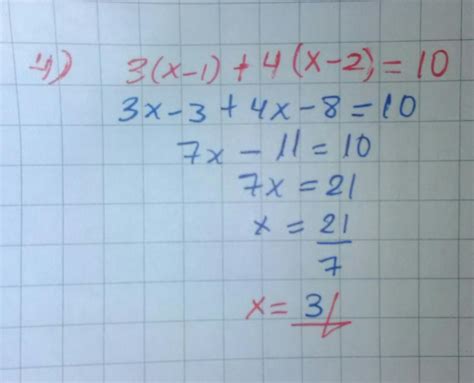 4) 3(x-1) + 4(x-2) = 10
3x-3 + 4x-8 = 10
7x - 11 = 10
7x = 21
x = 21/7
x = 3